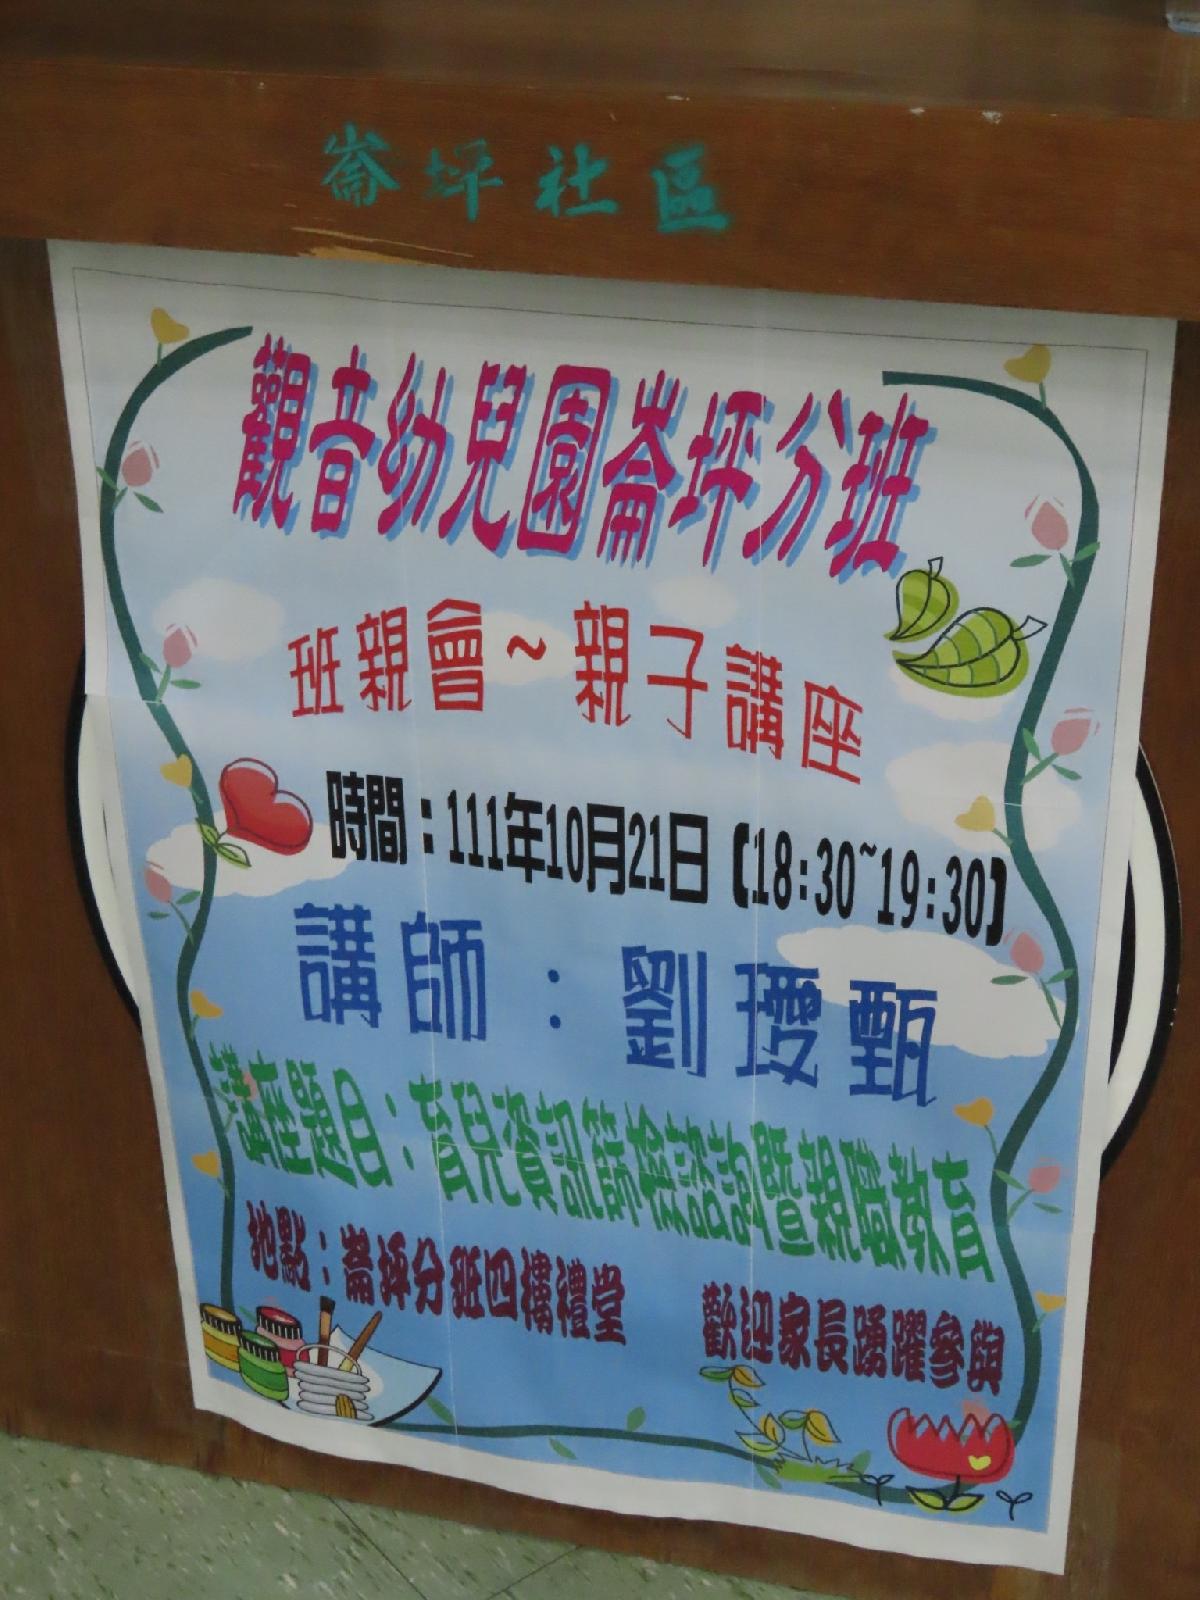 崙坪社區
觀音幼兒園崙坪分班
班親會~親子講座
時間：111年10月21日【18:30~19:30】
講師：劉㻸甄
講座題目：育兒資訊篩檢諮詢暨親職教育
地點：崙坪分班四樓禮堂 歡迎家長踴躍參與